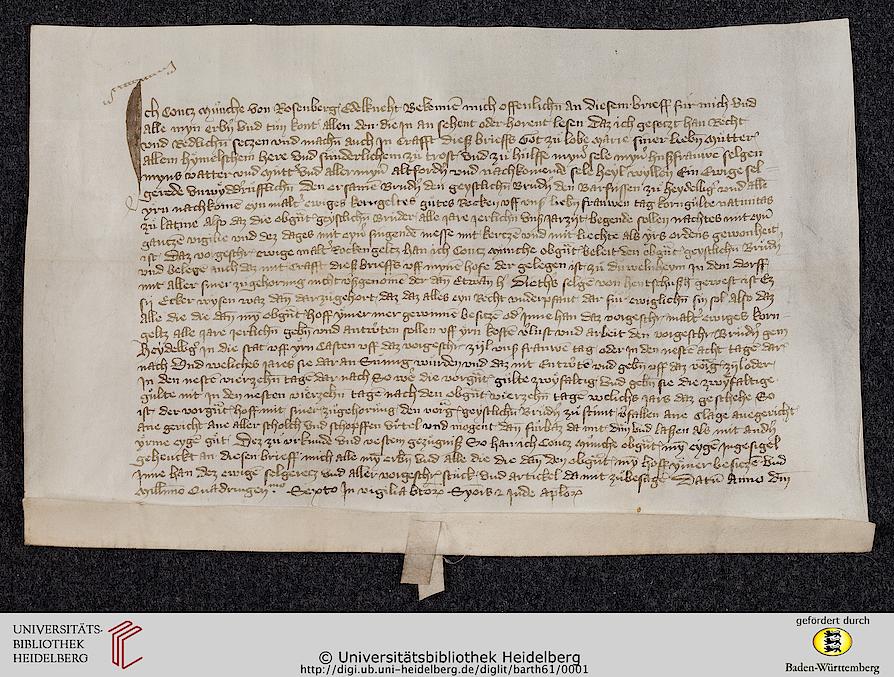 Ich Contz Münche von Rosenberg Edelknecht Bekenne mich offenlichn an diesem brieff für mich vnd
alle myn erbn vnd tun kont allen den die in an sehent oder horent lesen Daz ich gesetzt han Recht
vnd Redlichn setzen vnd machn auch in Crafft dieß brieffs Got zü lobe Marie siner liebn Mütter
allem hymelschem here vnd sünderlichem zü trost vnd zü hülffe myner sele myner hußfrauwe selgen
myns vatter vnd mütter vnd aller myner altfordern vnd nachkomende sele heyl willen Ein Ewige sel
gerede vnwydderrüfflichn den ersamen Brüdern den geystlichn Brüdern den Barfussen zü Heydelberg vnd alle
yrn nachkomen eyn malter ewiges korngeltes gütes Rocken vff vnser liebn frauwen tag korngülte natiuitas
zü latine Also daz die obgüt geystlichn Brüder alle jare jerlichn
gantze vigilie vnd dez dages mit eyner singende messe mit kertzen vnd mit liechte als yrs ordens gewonheit
ist Daz vorgeschr ewige malter Rockengeltz han ich Contz Münche obgüt beleit den obgüt geystlichn Brüdern
vnd belege auch daz mit Crafft dieß brieffs vff myne hofe der gelegen ist zü in dem dorff
mit aller siner zügehorung nicht vßgenomen der da Etwan selgen von Hentschüßheim gewest ist Ez
sij Ecker wysen waz dan dar zügehort daz daz alles eyn Recht vnderpfant dar für ewiglichn sin sol Also daz
alle die die den my obgüt hoff ymer mer gewinnen besitzen oder jnne han daz vorgeschr malter ewiges korn
geltz alle jare jerlichn gebn vnd antworten sollen vff yrn kosten verlust vnd arbeit den vorgeschr Brüdern gein
Heydelberg in die stat vff yrn Casten vff daz vorgeschr zijl vnser frauwe tag oder in den neste acht tagen dar
nach Vnd weliches jares sie dar an sümig würden vnd daz nit Entworte vnd gebn vff daz vorg zijl oder
In den neste vierzehn tagen dar nach So die vorgüt gülte zwyfaltig Vnd gebn sie die zwyfaltige
gülte nit in den nesten vierzehn tagen nach den obgüt vierzehn tagen welichs jars daz geschehe So
ist der vorgüt hoff mit siner zügehorüng den vorg geystlichn Brüdern zü stünt verfallen ane Clage ane gericht
ane gericht ane aller scholtheis vnd schopffen vrtel vnd mogent dan fürbaz da mit dün vnd laßen als mit andern
yrme eygen güt Dez zü vrkünde vnd vestem gezügniß So han ich Contz Münche obgüt myn eygen Ingesigel
gehenckt an diesen brieff mich alle myn erbn vnd alle die die den obgüt myn hoff ymer besitzen vnd
jnne han dez ewigen selgeretz vnd aller vorgeschr stück vnd artickel da mit zübesagen Datum Anno dni
Millimo Quadringen.mo Sexto In vigilia btorum Symonis et Jude aplorum
UNIVERSITÄTS-
BIBLIOTHEK
HEIDELBERG
© Universitätsbibliothek Heidelberg
http://digi.ub.uni-heidelberg.de/diglit/barth61/0001
gefördert durch
Baden-Württemberg